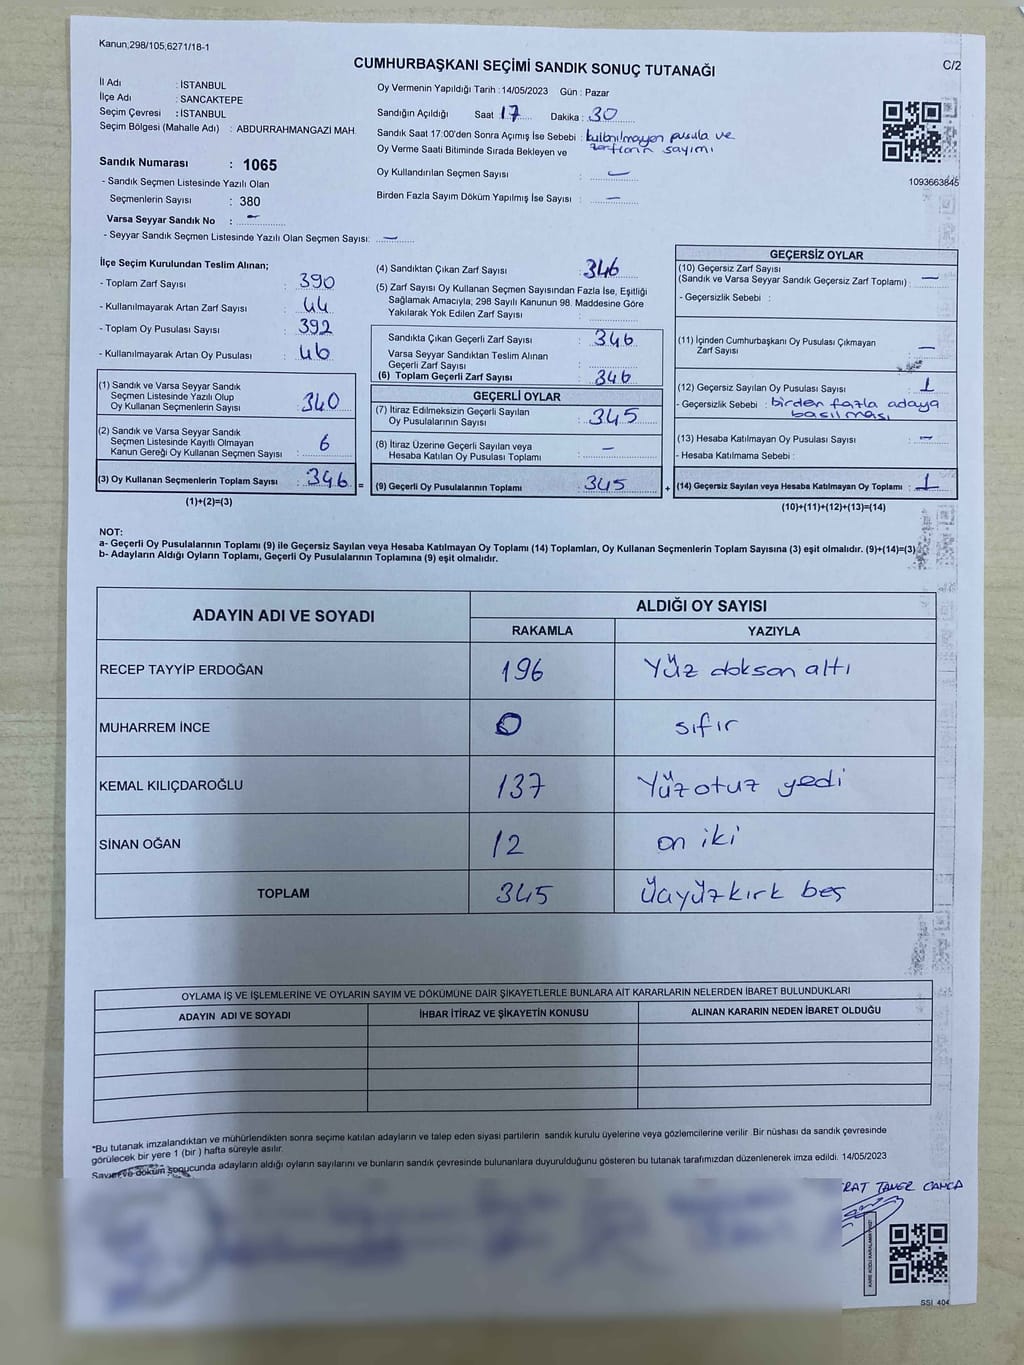 Kanun,298/105,6271/18-1
C/2
CUMHURBAŞKANI SEÇİMİ SANDIK SONUÇ TUTANAĞI
İl Adı : İSTANBUL
İlçe Adı : SANCAKTEPE
Seçim Çevresi : İSTANBUL
Seçim Bölgesi (Mahalle Adı) : ABDURRAHMANGAZİ MAH.
Sandık Numarası : 1065
- Sandık Seçmen Listesinde Yazılı Olan
Seçmenlerin Sayısı : 380
Varsa Seyyar Sandık No : -
- Seyyar Sandık Seçmen Listesinde Yazılı Olan Seçmen Sayısı: -
Oy Vermenin Yapıldığı Tarih : 14/05/2023 Gün : Pazar
Sandığın Açıldığı Saat 17 Dakika : 30
Sandık Saat 17:00'den Sonra Açımış İse Sebebi : kullanılmayan pusula ve
zarfların sayımı
Oy Verme Saati Bitiminde Sırada Bekleyen ve
Oy Kullandırılan Seçmen Sayısı : -
Birden Fazla Sayım Döküm Yapılmış İse Sayısı : -
1093663845
İlçe Seçim Kurulundan Teslim Alınan;
- Toplam Zarf Sayısı : 390
- Kullanılmayarak Artan Zarf Sayısı : 44
- Toplam Oy Pusulası Sayısı : 392
- Kullanılmayarak Artan Oy Pusulası : 46
(1) Sandık ve Varsa Seyyar Sandık
Seçmen Listesinde Yazılı Olup
Oy Kullanan Seçmenlerin Sayısı : 340
(2) Sandık ve Varsa Seyyar Sandık
Seçmen Listesinde Kayıtlı Olmayan
Kanun Gereği Oy Kullanan Seçmen Sayısı : 6
(3) Oy Kullanan Seçmenlerin Toplam Sayısı : 346 =
(1)+(2)=(3)
(4) Sandıktan Çıkan Zarf Sayısı : 346
(5) Zarf Sayısı Oy Kullanan Seçmen Sayısından Fazla İse, Eşitliği
Sağlamak Amacıyla; 298 Sayılı Kanunun 98. Maddesine Göre
Yakılarak Yok Edilen Zarf Sayısı :
Sandıkta Çıkan Geçerli Zarf Sayısı : 346
Varsa Seyyar Sandıktan Teslim Alınan
Geçerli Zarf Sayısı :
(6) Toplam Geçerli Zarf Sayısı : 346
GEÇERLİ OYLAR
(7) İtiraz Edilmeksizin Geçerli Sayılan
Oy Pusulalarının Sayısı : 345
(8) İtiraz Üzerine Geçerli Sayılan veya
Hesaba Katılan Oy Pusulası Toplamı : -
(9) Geçerli Oy Pusulalarının Toplamı : 345 +
GEÇERSİZ OYLAR
(10) Geçersiz Zarf Sayısı
(Sandık ve Varsa Seyyar Sandık Geçersiz Zarf Toplamı) : -
- Geçersizlik Sebebi :
(11) İçinden Cumhurbaşkanı Oy Pusulası Çıkmayan
Zarf Sayısı : -
(12) Geçersiz Sayılan Oy Pusulası Sayısı : 1
- Geçersizlik Sebebi : birden fazla adaya
basılması
(13) Hesaba Katılmayan Oy Pusulası Sayısı : -
- Hesaba Katılmama Sebebi :
(14) Geçersiz Sayılan veya Hesaba Katılmayan Oy Toplamı : 1
(10)+(11)+(12)+(13)=(14)
NOT:
a- Geçerli Oy Pusulalarının Toplamı (9) ile Geçersiz Sayılan veya Hesaba Katılmayan Oy Toplamı (14) Toplamları, Oy Kullanan Seçmenlerin Toplam Sayısına (3) eşit olmalıdır. (9)+(14)=(3)
b- Adayların Aldığı Oyların Toplamı, Geçerli Oy Pusulalarının Toplamına (9) eşit olmalıdır.
ADAYIN ADI VE SOYADI
ALDIĞI OY SAYISI
RAKAMLA YAZIYLA
RECEP TAYYİP ERDOĞAN 196 Yüz doksan altı
MUHARREM İNCE 0 sıfır
KEMAL KILIÇDAROĞLU 137 Yüzotuz yedi
SİNAN OĞAN 12 on iki
TOPLAM 345 üçyüzkırk beş
OYLAMA İŞ VE İŞLEMLERİNE VE OYLARIN SAYIM VE DÖKÜMÜNE DAİR ŞİKAYETLERLE BUNLARA AİT KARARLARIN NELERDEN İBARET BULUNDUKLARI
ADAYIN ADI VE SOYADI İHBAR İTİRAZ VE ŞİKAYETİN KONUSU ALINAN KARARIN NEDEN İBARET OLDUĞU
"Bu tutanak imzalandıktan ve mühürlendikten sonra seçime katılan adayların ve talep eden siyasi partilerin sandık kurulu üyelerine veya gözlemcilerine verilir .Bir nüshası da sandık çevresinde
görülecek bir yere 1 (bir ) hafta süreyle asılır.
Sayım ve döküm sonucunda adayların aldığı oyların sayılarını ve bunların sandık çevresinde bulunanlara duyurulduğunu gösteren bu tutanak tarafımızdan düzenlenerek imza edildi. 14/05/2023
TANER CANCA
SSI 404